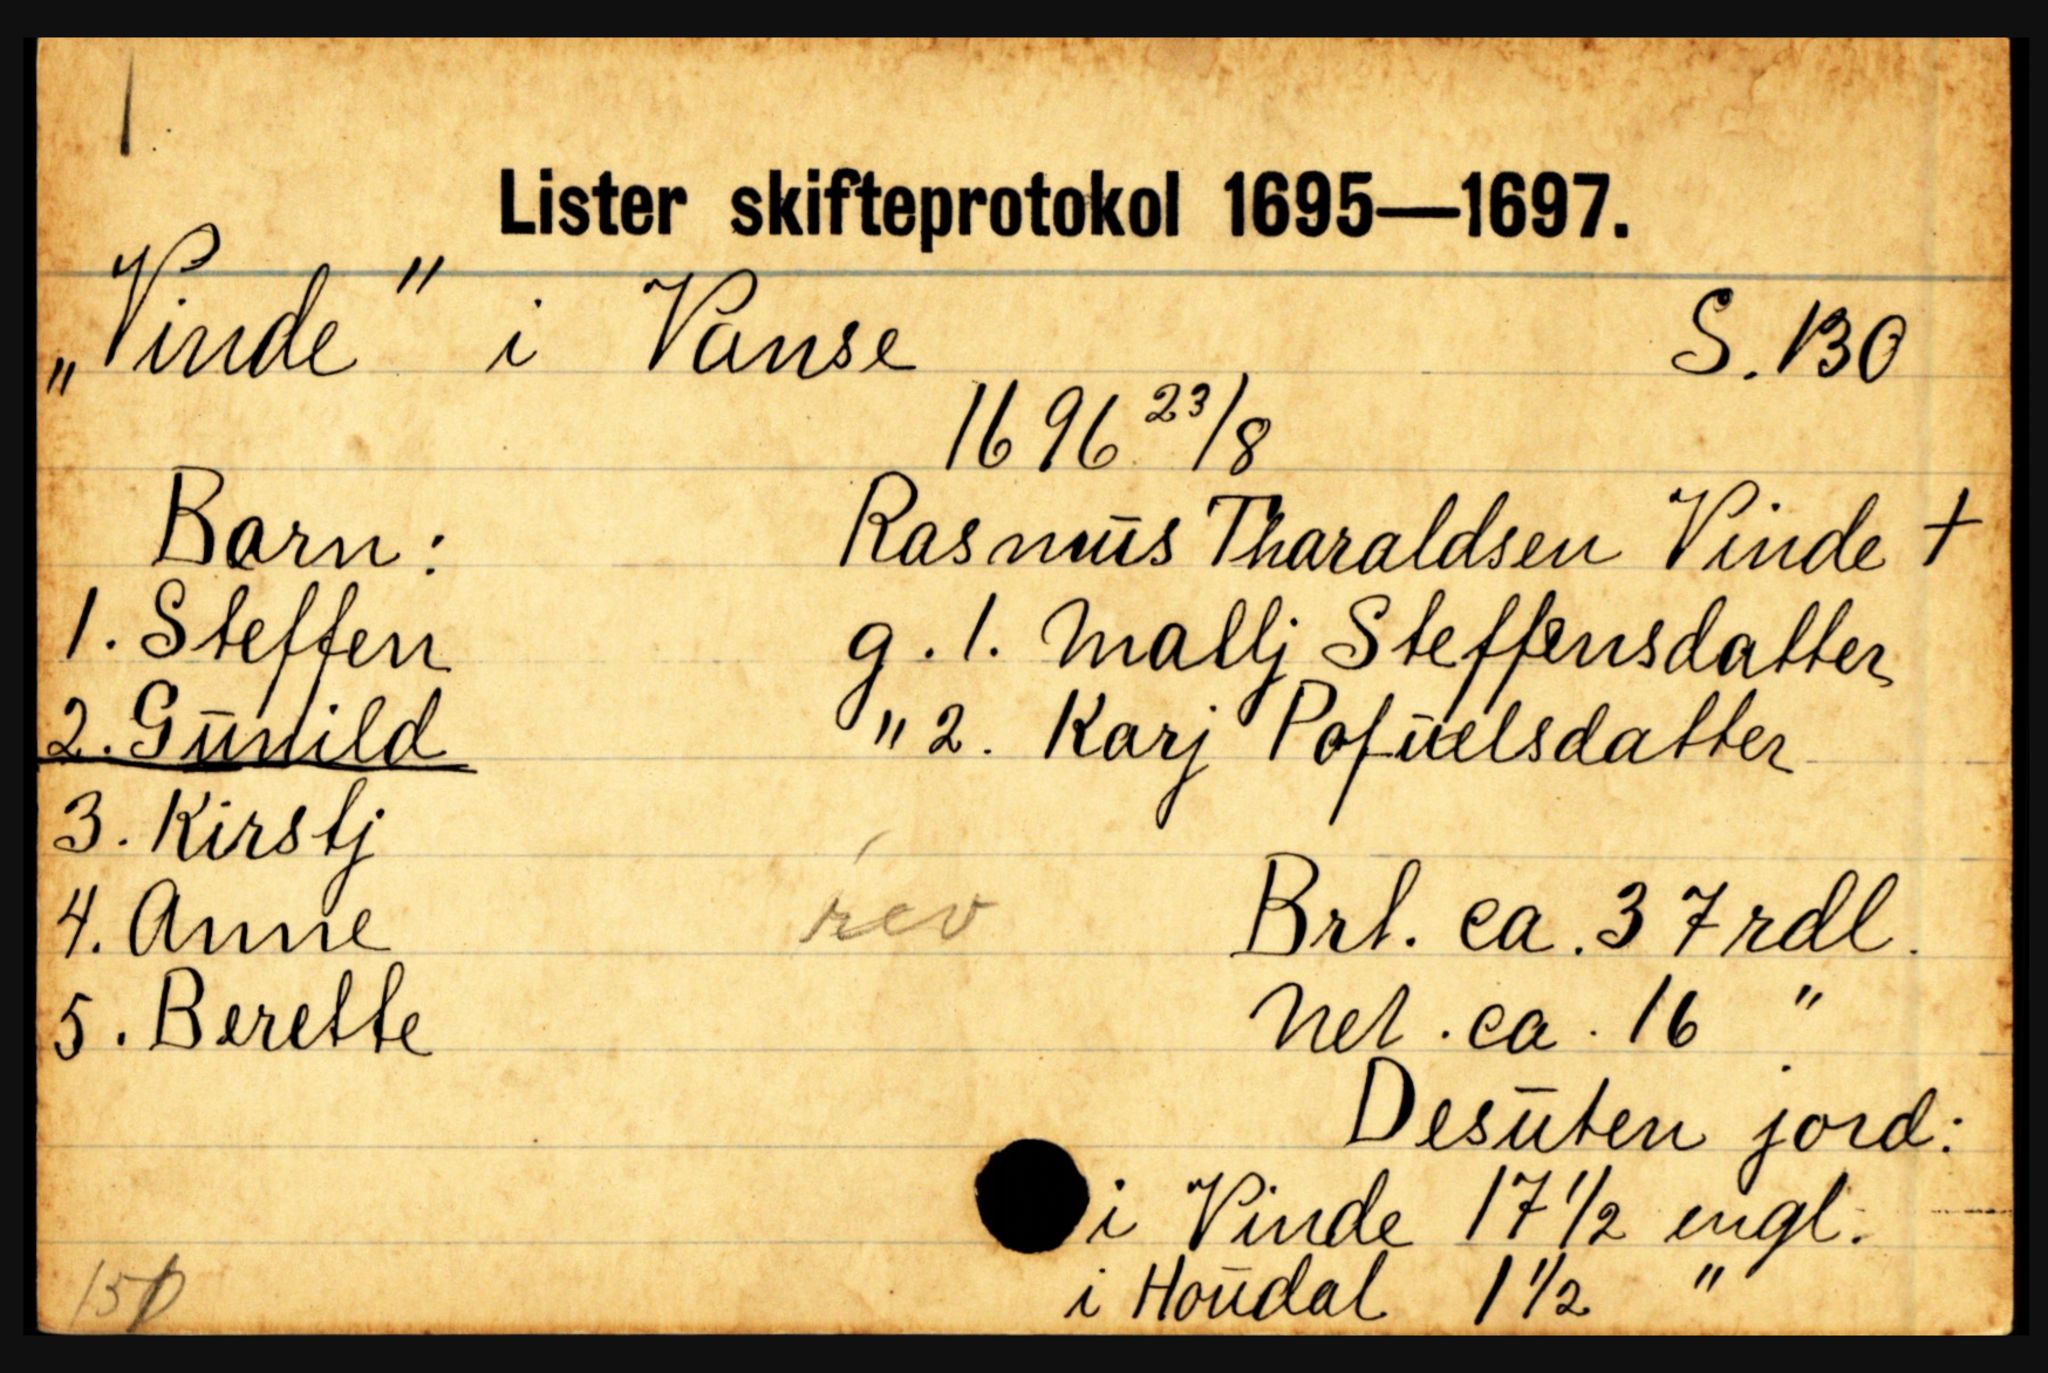 Lister skifteprotokol 1695—1697.
„Vinde" i Vanse S. 130
1696 23/8
Barn: Rasmus Tharaldsen Vinde †
1. Steffen g. 1. Mallj Steffensdatter
2. Gunild " 2. Karj Pofuelsdatter
3. Kirstj
4. Anne rev Brt. ca. 37 rdl.
5. Berette Net. ca. 16 "
Desuten jord:
i Vinde 17 1/2 engl.
i Houdal 1 1/2 "